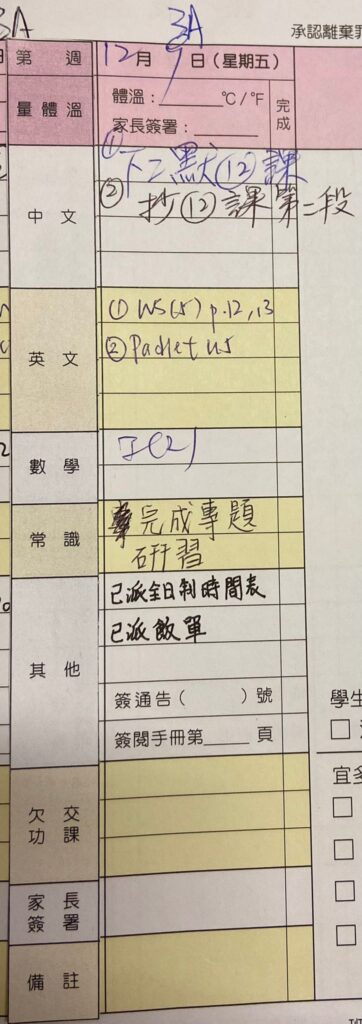 3A
3A
承認離棄罪
第 週
12月9日(星期五)
量體溫
體溫:______℃/℉
家長簽署:______
完成
中文
① 下二默⑫課
② 抄⑫課第二段
英文
① WS(5) p.12,13
② Packet U5
數學
工(2)
常識
完成專題
研習
其他
已派全日制時間表
已派飯單
簽通告( )號
簽閱手冊第____頁
欠交
功課
家長
簽署
備註
學生
宜多